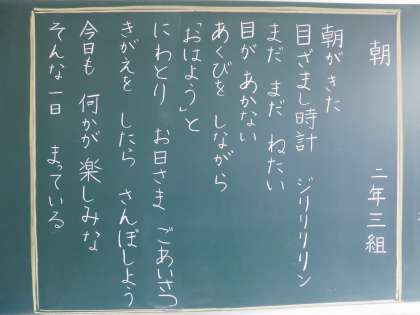 朝　二年三組
朝がきた
目ざまし時計　ジリリリリン
まだ　まだ　ねたい
目が　あかない
あくびを　しながら
「おはよう」と
にわとり　お日さま　ごあいさつ
きがえを　したら　さんぽしよう
今日も　何かが　楽しみな
そんな一日　まっている